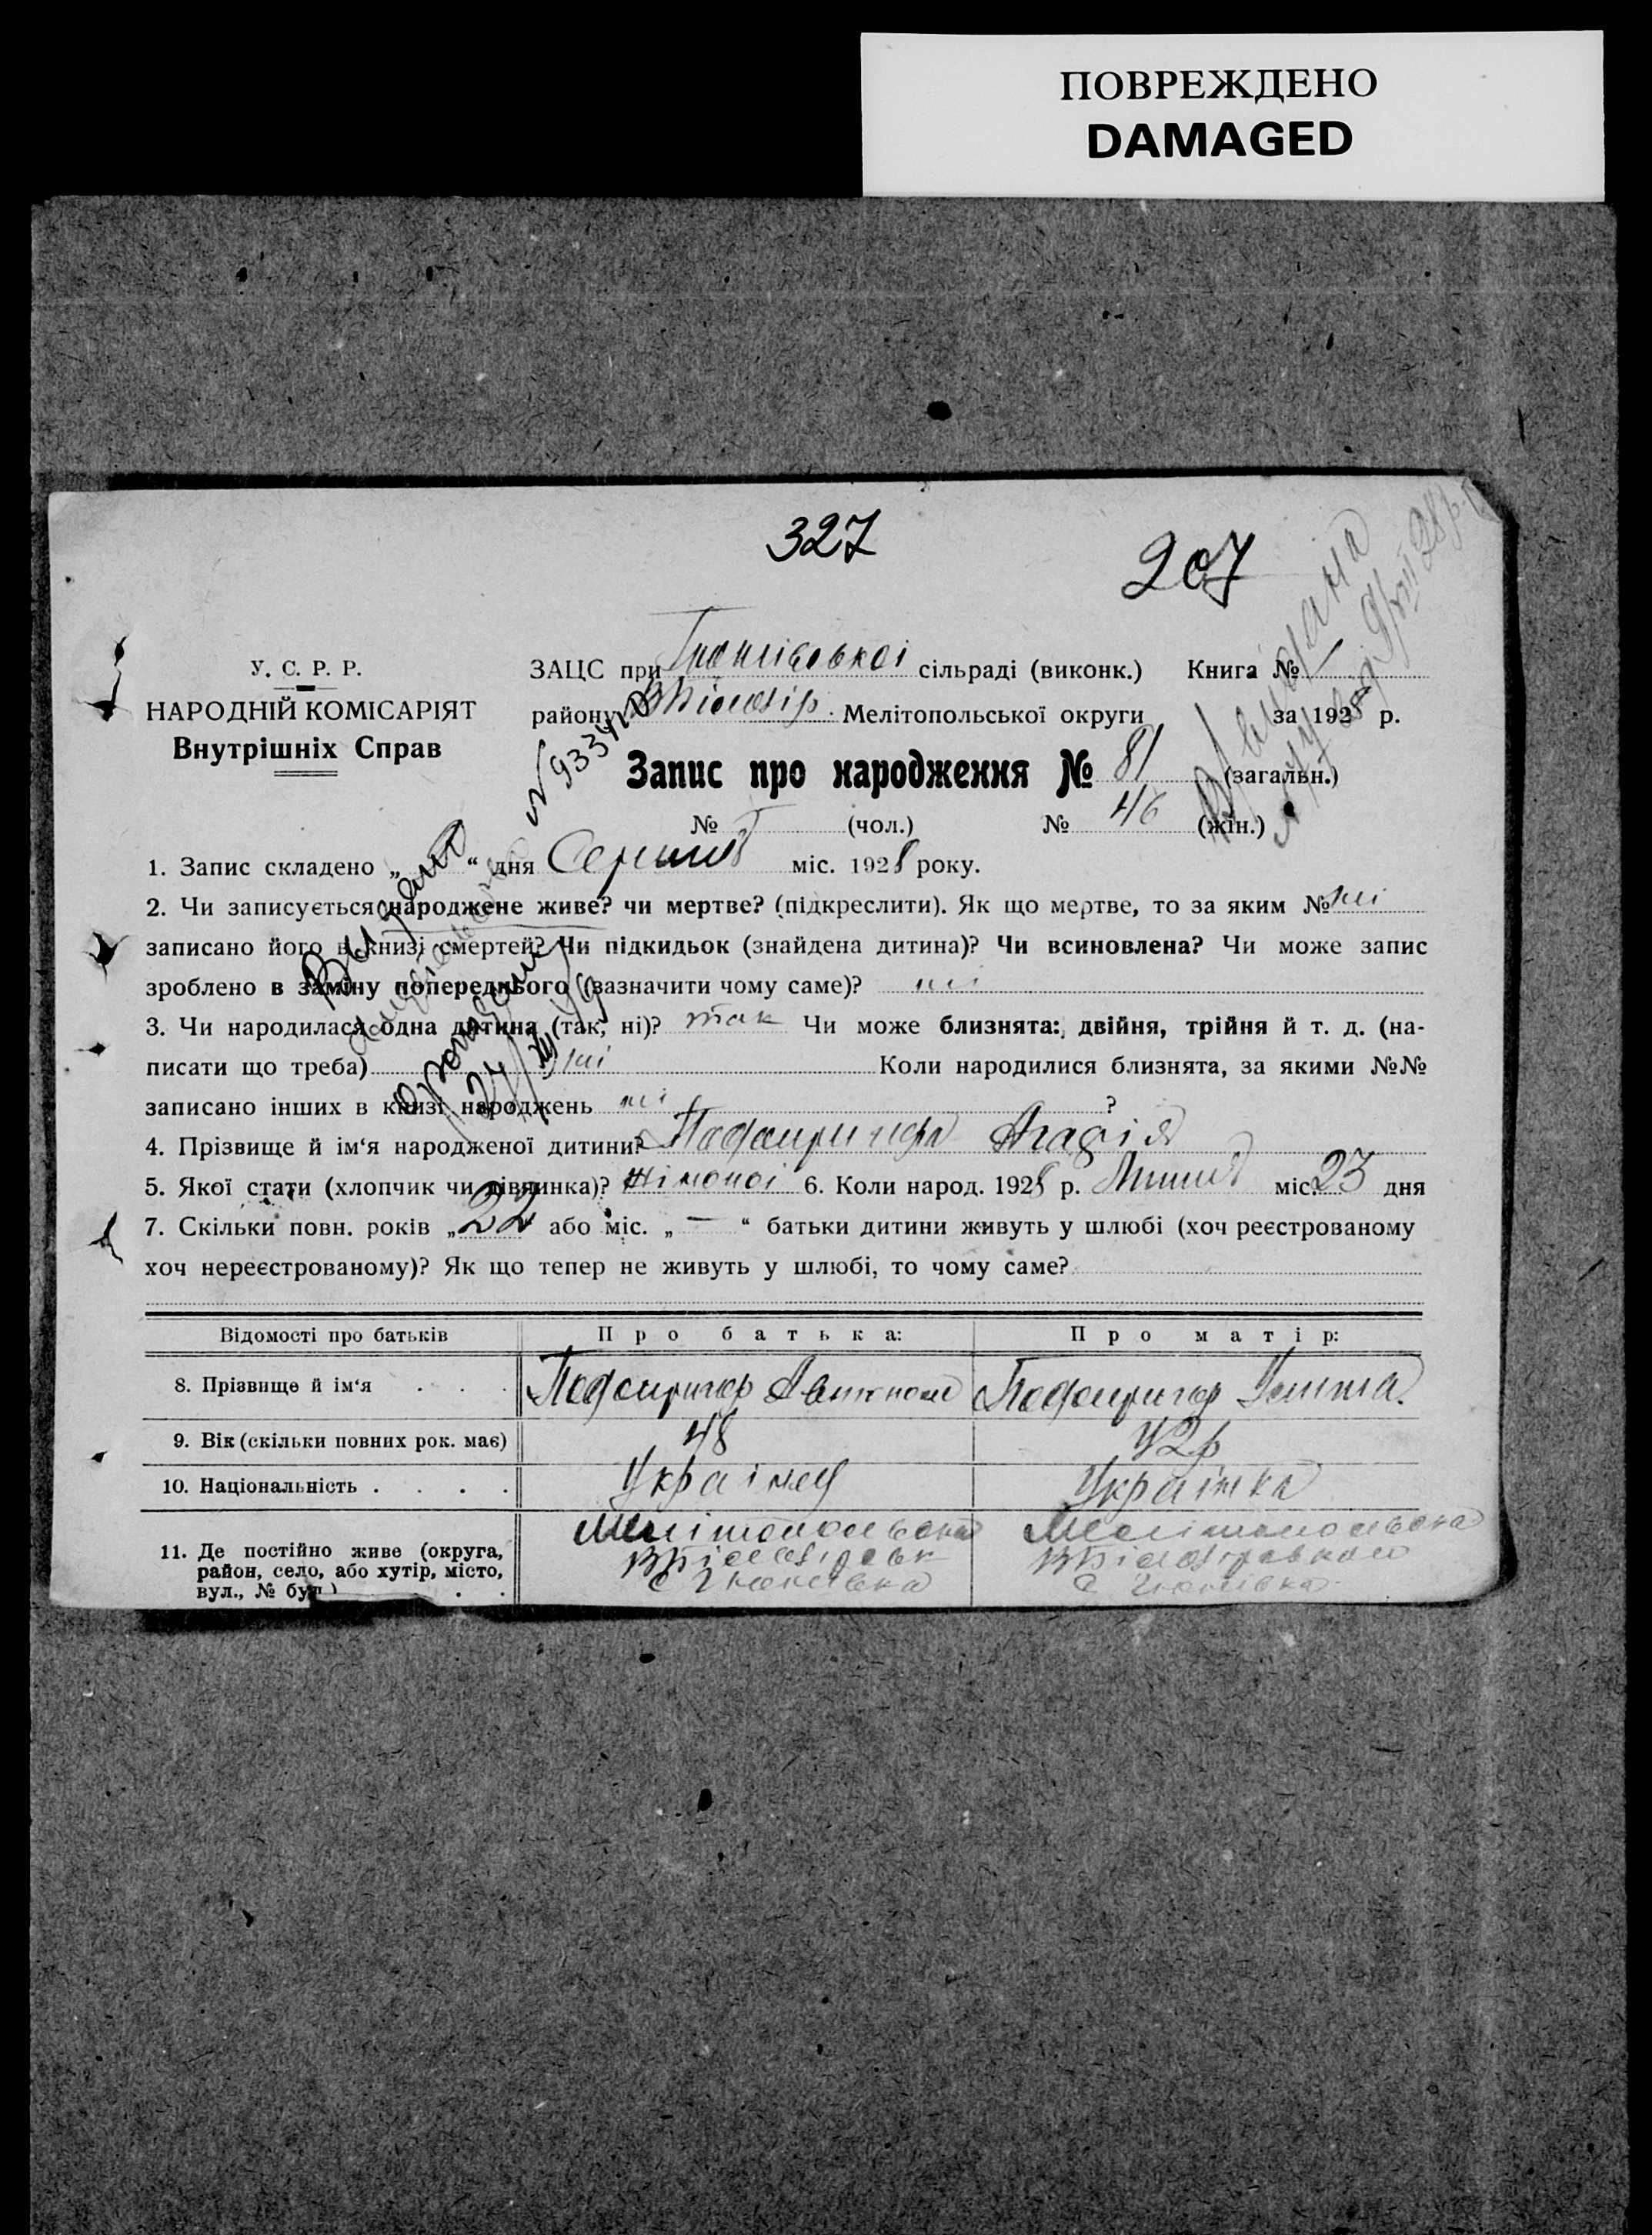 ПОВРЕЖДЕНО
DAMAGED
327
207
У. С. Р. Р.
НАРОДНІЙ КОМІСАРІЯТ
Внутрішніх Справ
ЗАЦС при сільраді (виконк.) Книга №
району Мелітопольської округи за 1928 р.
Запис про народження № 81 (загальн.)
№ (чол.) № 46 (жін.)
1. Запис складено „ “ дня Серпня міс. 1928 року.
2. Чи записується народжене живе? чи мертве? (підкреслити). Як що мертве, то за яким № ні
записано його в книзі смертей? Чи підкидьок (знайдена дитина)? Чи всиновлена? Чи може запис
зроблено в заміну попереднього (зазначити чому саме)? ні
3. Чи народилася одна дитина (так, ні)? так Чи може близнята: двійня, трійня й т. д. (на-
писати що треба) ні Коли народилися близнята, за якими №№
записано інших в книзі народжень ні ?
4. Прізвище й ім‘я народженої дитини?
5. Якої стати (хлопчик чи дівчинка)? жіночої 6. Коли народ. 1928 р. Липня міс. 23 дня
7. Скільки повн. років „ 22 або міс. „ — “ батьки дитини живуть у шлюбі (хоч реєстрованому
хоч нереєстрованому)? Як що тепер не живуть у шлюбі, то чому саме?
Відомості про батьків Про батька: Про матір:
8. Прізвище й ім‘я . . . Подопригор Автоном Подопригор
9. Вік (скільки повних рок. має) 48 42р
10. Національність . . . . Українец Українка
11. Де постійно живе (округа, Мелітопольска Мелітопольска
район, село, або хутір, місто,
вул., № буд.) . .